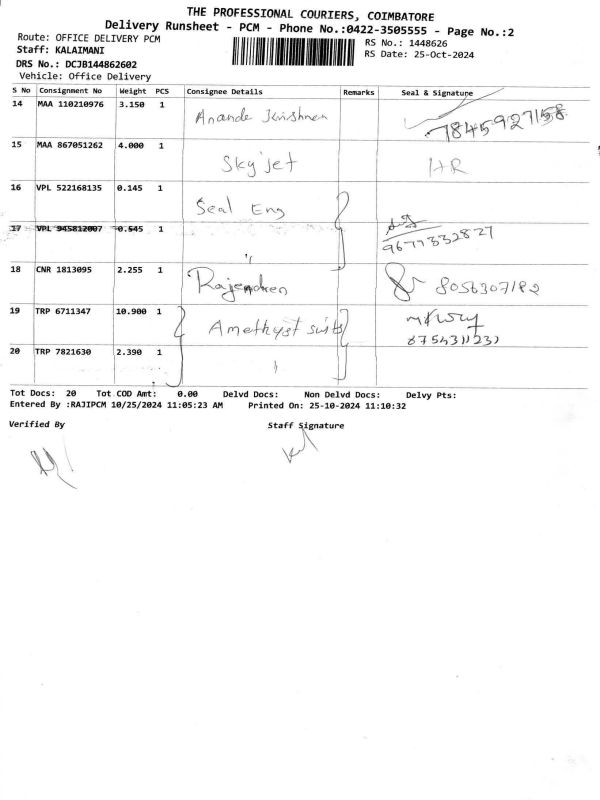 THE PROFESSIONAL COURIERS, COIMBATORE
Delivery Runsheet - PCM - Phone No.:0422-3505555 - Page No.:2
Route: OFFICE DELIVERY PCM
RS No.: 1448626
Staff: KALAIMANI
RS Date: 25-Oct-2024
DRS No.: DCJB144862602
Vehicle: Office Delivery
S No Consignment No Weight PCS Consignee Details Remarks Seal & Signature
14 MAA 110210976 3.150 1 7845927158
15 MAA 867051262 4.000 1 Skyjet HR
16 VPL 522168135 0.145 1 Seal Eng
17 VPL 945812007 0.545 1 " 9677332827
18 CNR 1813095 2.255 1 Rajendren 8056307182
19 TRP 6711347 10.900 1 Amethyst suits
20 TRP 7821630 2.390 1
Tot Docs: 20 Tot COD Amt: 0.00 Delvd Docs: Non Delvd Docs: Delvy Pts:
Entered By :RAJIPCM 10/25/2024 11:05:23 AM Printed On: 25-10-2024 11:10:32
Verified By Staff Signature